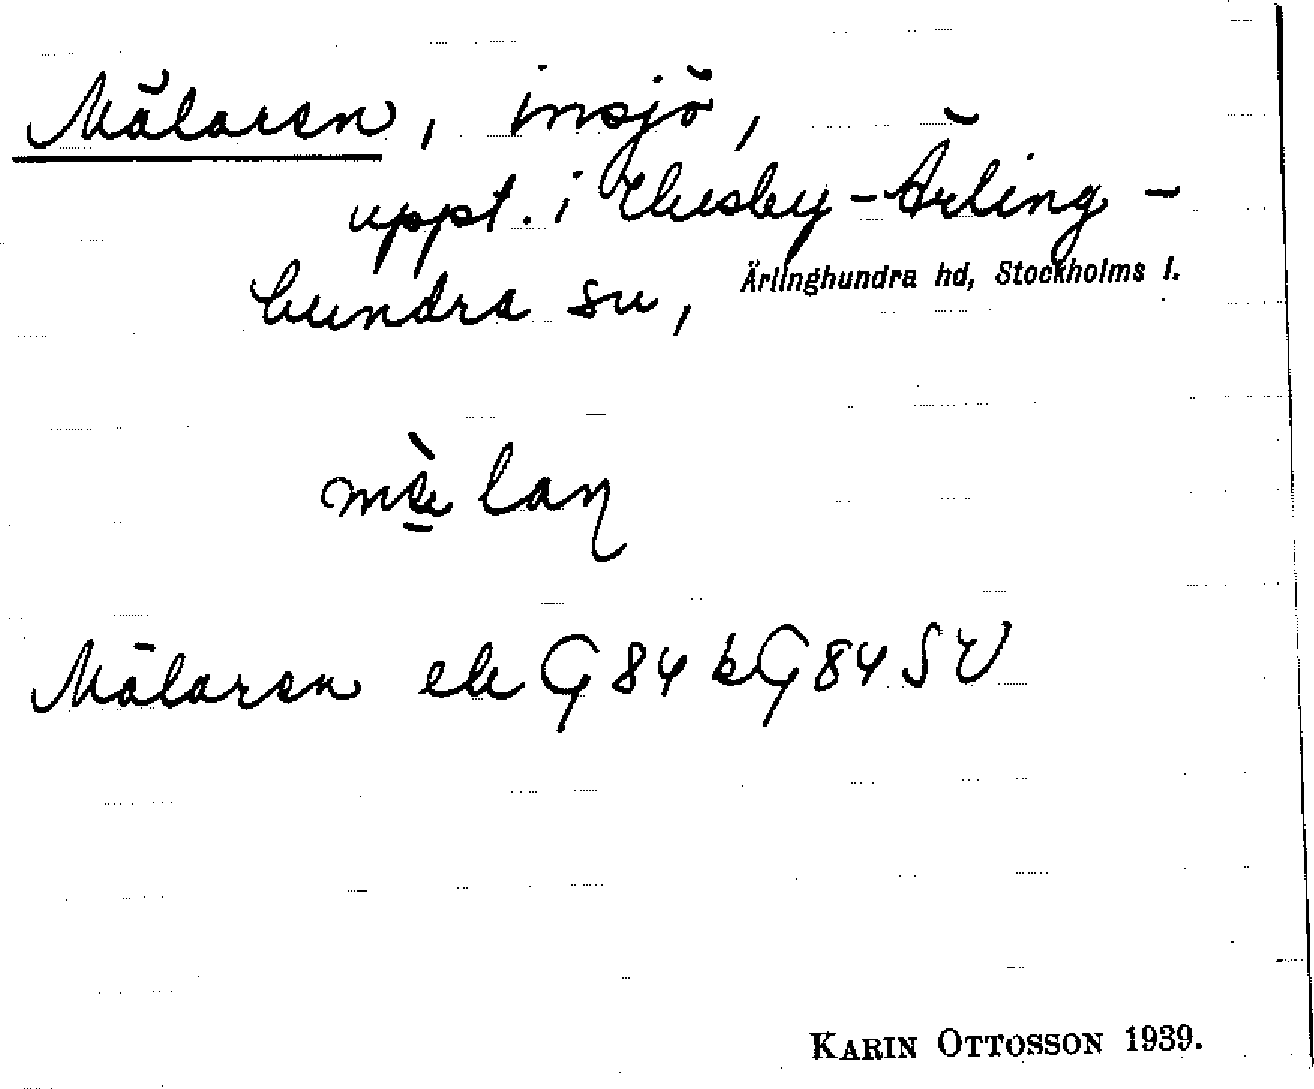 Mälaren, insjö,
uppt. i Husby-Ärling-
hundra sn,
Ärlinghundra hd, Stockholms l.
mæ̲̀laṇ
Mälaren ek G 84 k G 84 SV
KARIN OTTOSSON 1939.